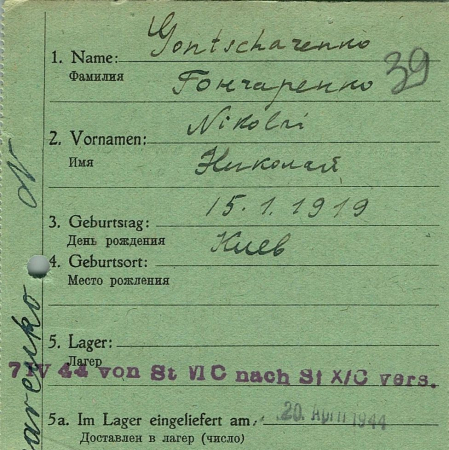 Gontscharenko
1. Name:
Фамилия
Гончаренко
39
Nikolai
2. Vornamen:
Имя
Николай
15.1.1919
3. Geburtstag:
День рождения
Киев
4. Geburtsort:
Место рождения
5. Lager:
Лагер
7 IV 44 von St VI C nach St X/C vers.
5a. Im Lager eingeliefert am:
20. April 1944
Доставлен в лагер (число)
N